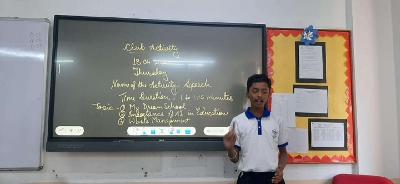 Club Activity
Thursday
Name of the Activity: Speech
Time Duration : 1 to 1:30 minutes
Topic - ① My Dream School
② Importance of AI in Education
③ Waste Management